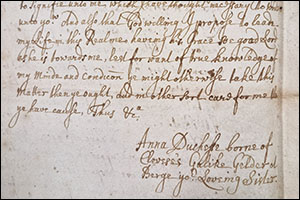 to signifie unto me which theye thought necessary to know
unto yow And also that God willing I purpose to leade
my life in this Realme haveing his Grace so good lord
as he is towards me, lest for want of true knowledge of
my Minde and condicon ye might otherwise take this
Matter then ye ought, and in other sort care for me then
ye have cause, Thus &c.
Anna Duchesse borne of
Cleves Gulike Gelder and
Berge yor Loveing Sister.